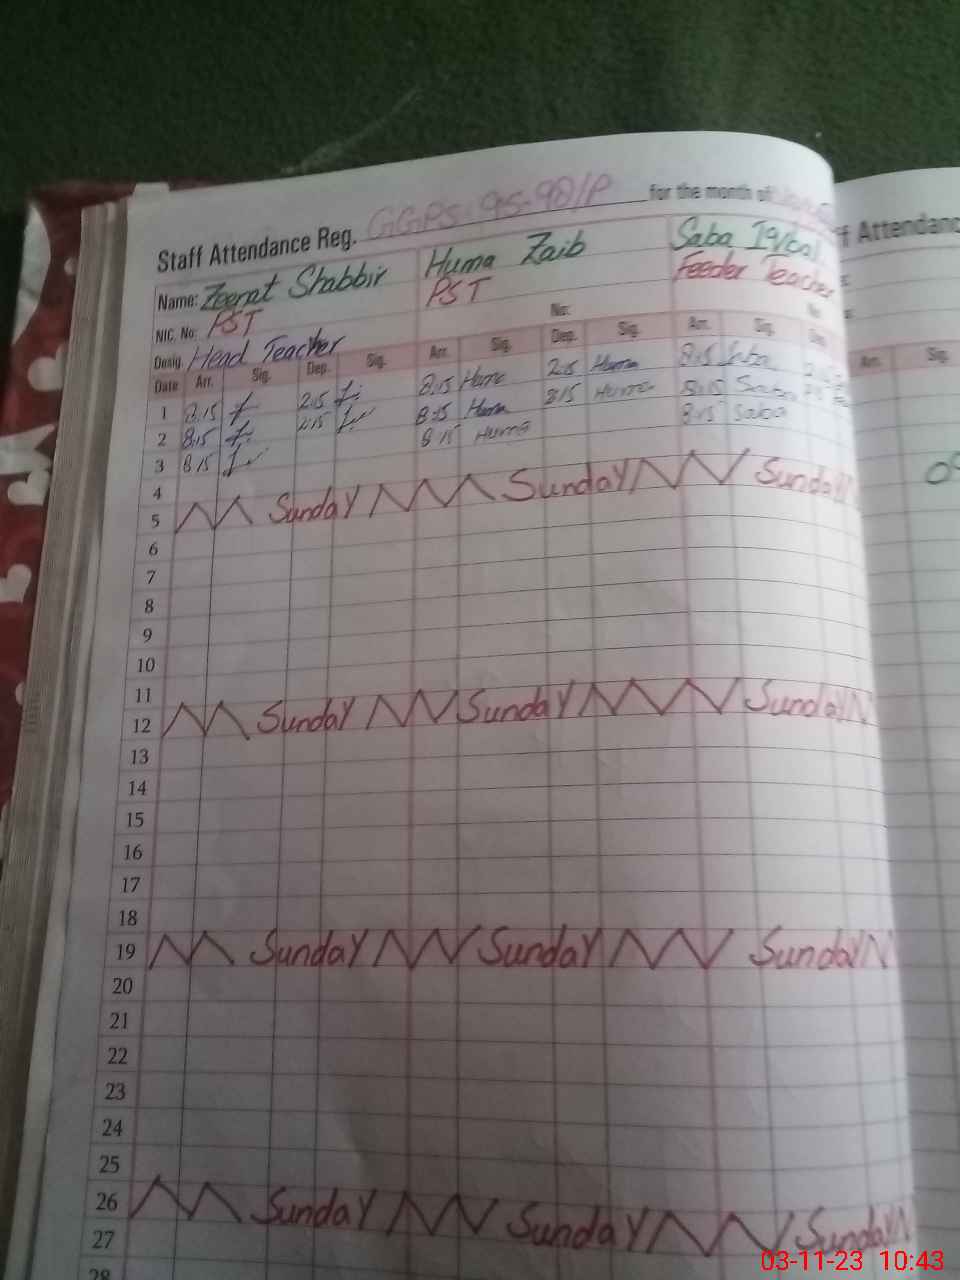 Staff Attendance Reg. GGPS. 95-98/P for the month of
Name: Zeenat Shabbir Huma Zaib Saba Iqbal
NIC. No: PST PST Feeder Teacher
Desig. Head Teacher No:
Date Arr. Sig. Dep. Sig. Arr. Sig. Dep. Sig. Arr. Sig. Dep.
1 8:15 2:15 8:15 Huma 2:15 Huma 8:15 Saba
2 8:15 2:15 8:15 Huma Huma 8:15 Saba
3 8:15 8:15 Huma 8:15 Saba
4
5 Sunday Sunday Sunday
6
7
8
9
10
11
12 Sunday Sunday Sunday
13
14
15
16
17
18
19 Sunday Sunday Sunday
20
21
22
23
24
25
26 Sunday Sunday Sunday
27
28
Attendanc
Arr. Sig.
03-11-23 10:43